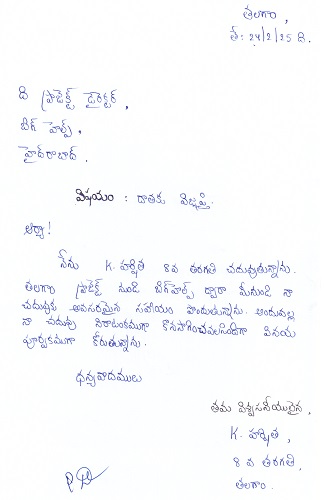 తలగాం,
తే: 24/2/25 ది.
ది ప్రాజెక్ట్ డైరెక్టర్,
బిగ్ హెల్ప్,
హైద్రాబాద్.
విషయం : దాతకు విజ్ఞప్తి.
ఆర్యా!
నేను K. హర్షిత 8వ తరగతి చదువుతున్నాను.
తలగాం ప్రాజెక్ట్ నుండి బిగ్‌హెల్ప్ ద్వారా మీనుండి నా
చదువుకు అవసరమైన సహాయం పొందుతున్నాను. అందువల్ల
నా చదువు నిరాటంకముగా కొనసాగించవలసిందిగా వినయ
పూర్వకముగా కోరుతున్నాను.
ధన్యవాదములు
తమ విశ్వసనీయురైన,
K. హర్షిత,
8 వ తరగతి,
తలగాం.